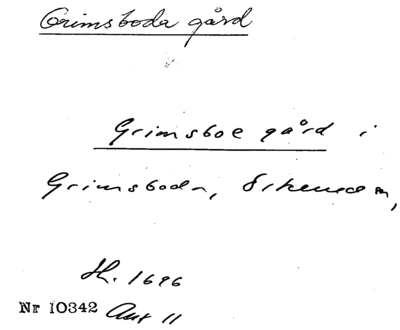 Grimsboda gård
Grimsboe gård i
Grimsboda,
H. 1696
Nr 10342 Aut 11